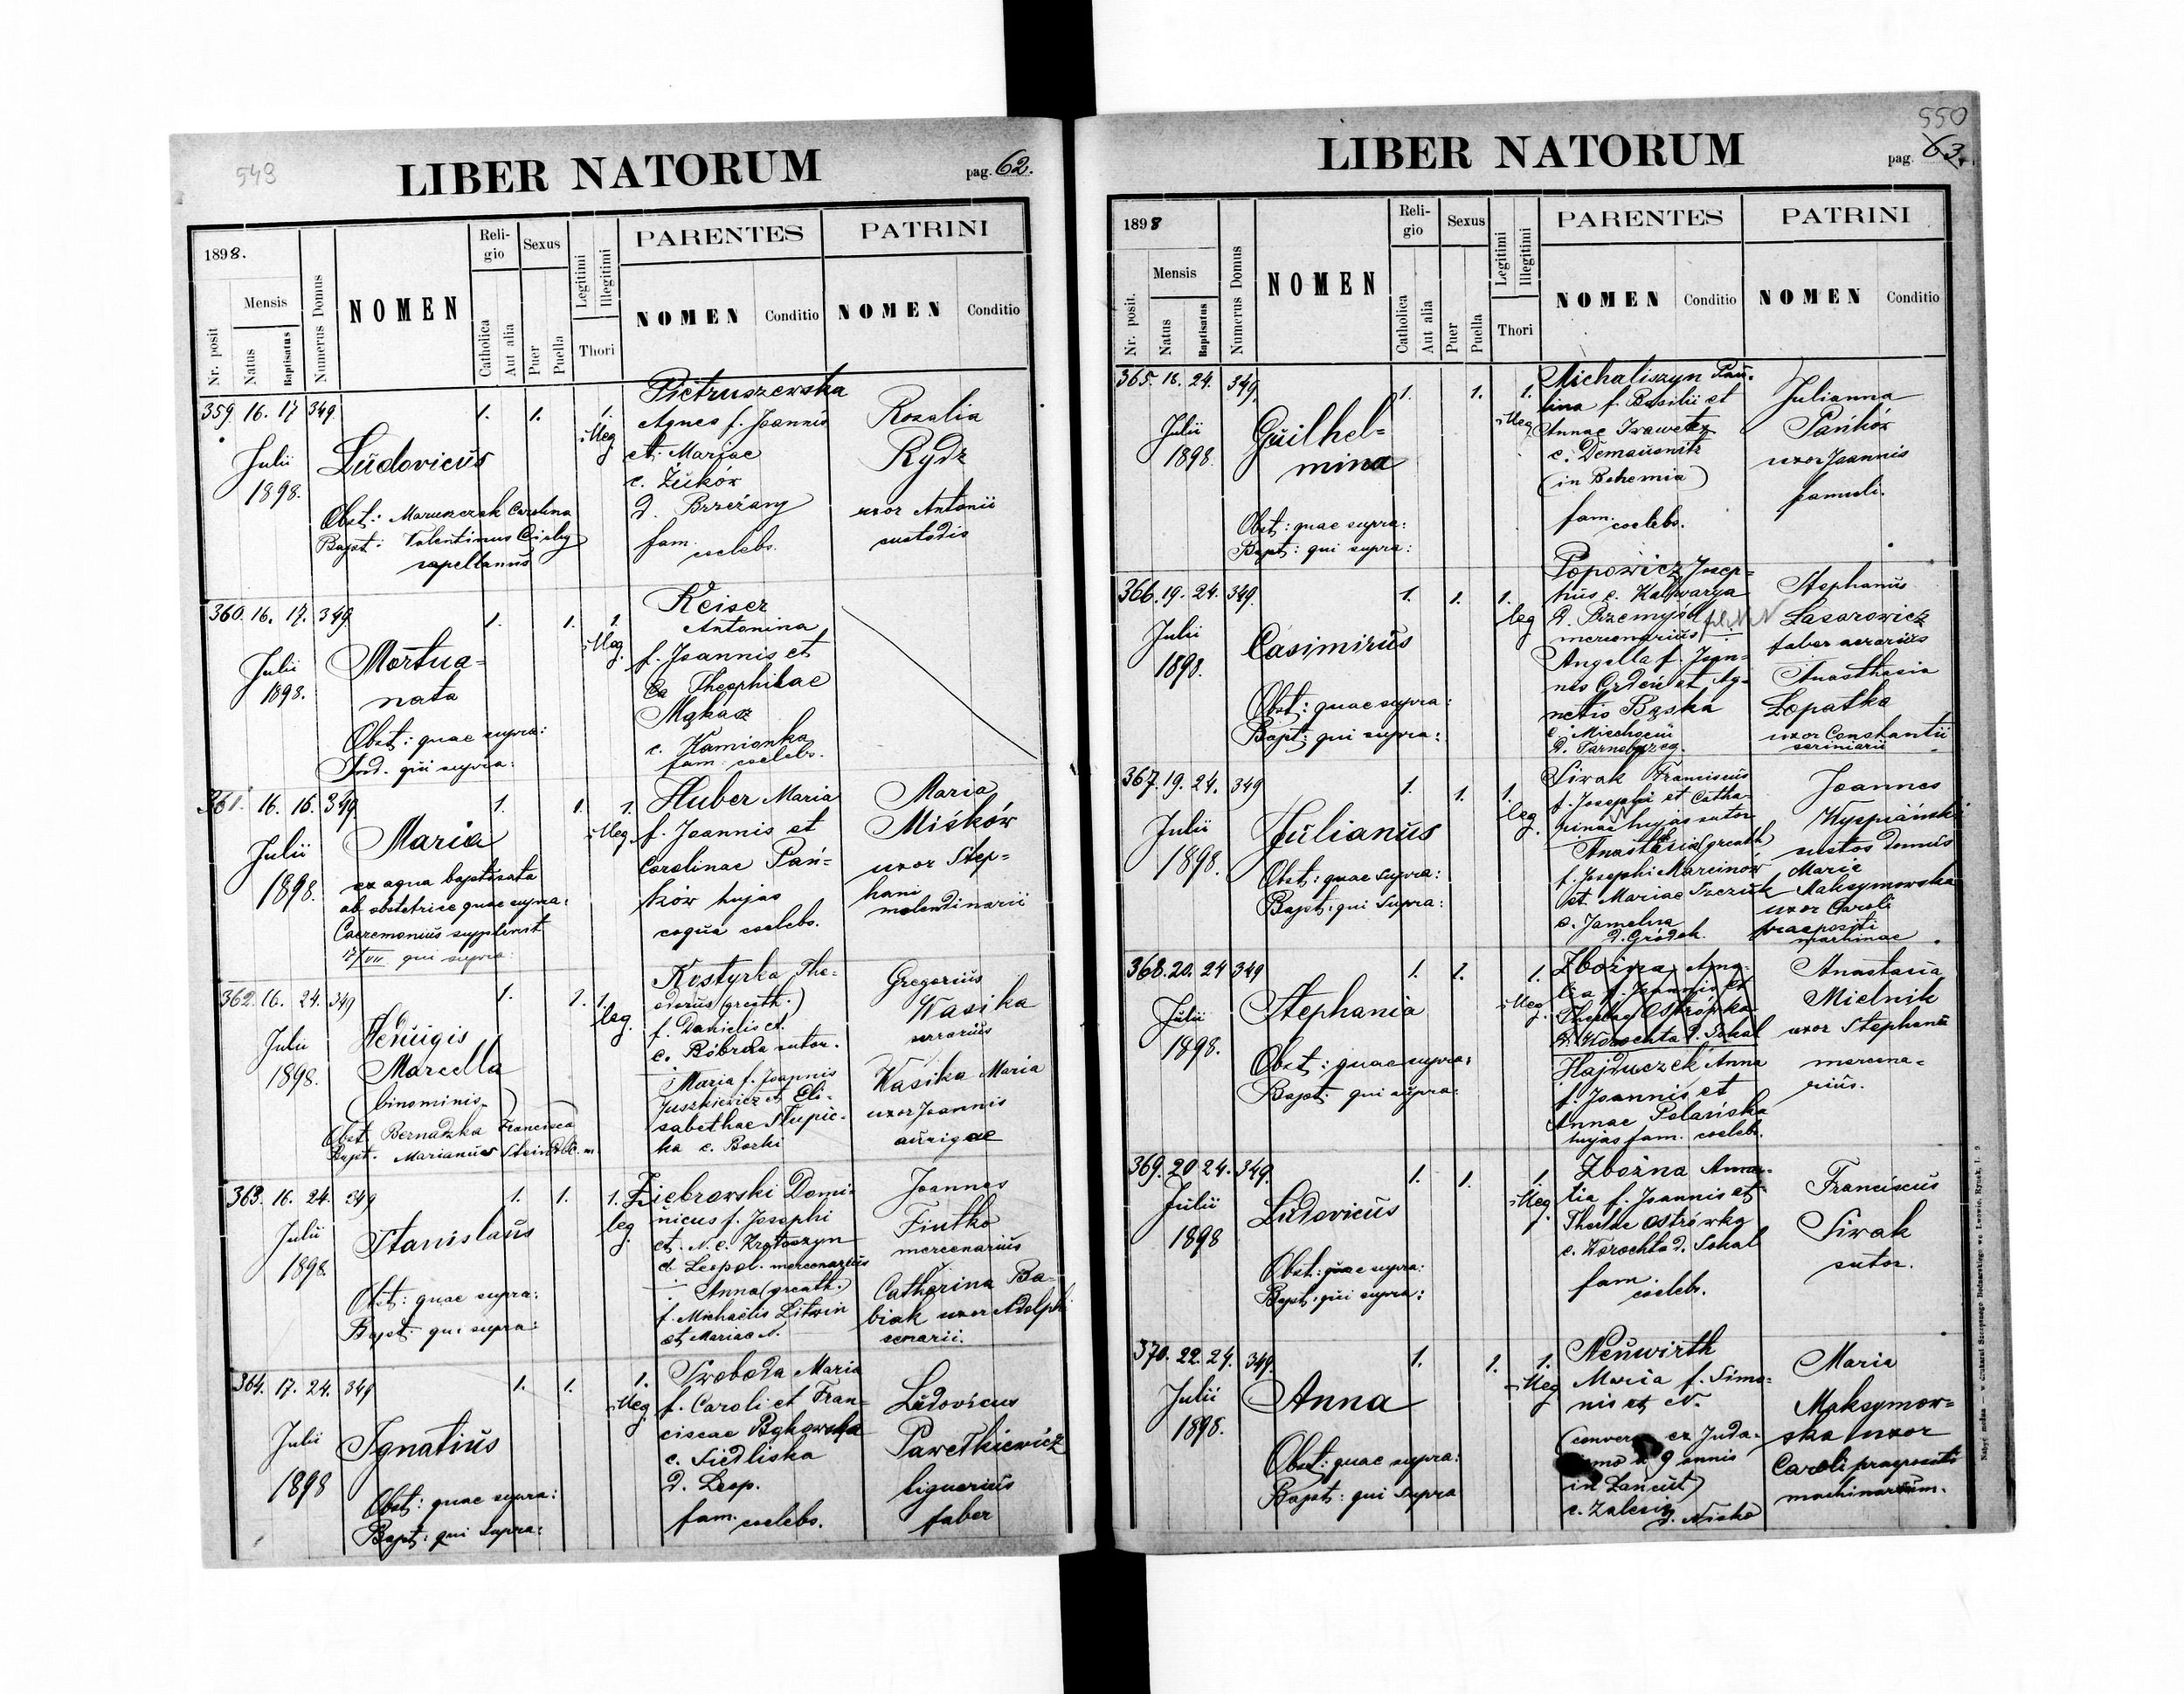 549
LIBER NATORUM
pag. 62.
1898.
Nr. posit
Mensis
Natus
Baptisatus
Numerus Domus
NOMEN
Reli-
gio
Catholica
Aut alia
Sexus
Puer
Puella
Legitimi
Illegitimi
Thori
PARENTES
NOMEN
Conditio
PATRINI
NOMEN
Conditio
359. 16. 17 349. 1. 1. 1.
Julii
1898.
Ludovicus
Obst: Maruszczak Carolina
Bapt: Valentinus
capellanus
illeg.
Pietruszewska
Agnes f. Joannis
et Mariae
c. Żuków
d. Brzeżany
fam.
coelebs.
Rozalia
Rydz
uxor Antonii
custodis
360. 16. 17. 349 1. 1. 1.
Julii
1898.
Mortua-
nata
Obst: quae supra:
Ind. qui supra:
illeg.
Keiser
Antonina
f. Joannis et
Theophilae
Mąkasz
c. Kamionka
fam. coelebs.
361. 16. 16. 349. 1. 1. 1.
Julii
1898.
Maria
ex aqua baptisata
ab obstetrice quae supra:
Caeremonius supplevit
17/VII qui supra
illeg.
Huber Maria
f. Joannis et
Carolinae Pań-
ków hujas
coqua coelebs.
Maria
Miśków
uxor Step-
hani
molendinarii
362. 16. 24. 349 1. 1. 1.
Julii
1898.
Henugis
Marcella
(binominis)
Obst. Bernadzka Francisca
Bapt. Marianus Stein
leg.
Kostyrka The-
odorus (greath.)
f. Danielis et
c. Bóbrka sutor.
Maria f. Joannis
Juszkiewicz et Eli-
sabethae Słupic-
ka c. Borki
Gregorius
Wasika
serrarius
Wasika Maria
uxor Joannis
aurigae
363. 16. 24. 349 1. 1. 1.
Julii
1898.
Stanislaus
Obst: quae supra:
Bapt: qui supra:
leg.
Ziebrowski Domi-
nicus f. Josephi
et N. c. Krotoszyn
d. Leopol. mercenarius
Anna (greath.)
f. Michaëlis Litwin
et Mariae N.
Joannes
Fiutko
mercenarius
Catharina Ba-
biak uxor Adolphi
scrarii.
364. 17. 24. 349 1. 1. 1.
Julii
1898
Ignatius
Obst: quae supra:
Bapt: qui supra:
illeg.
Swoboda Maria
f. Caroli et Fran-
ciscae Bąkowska
c. Siedliska
d. Leop.
fam. coelebs.
Ludovicus
Pawełkiewicz
lignarius
faber
550
LIBER NATORUM
pag. 63.
1898
Nr. posit.
Mensis
Natus
Baptisatus
Numerus Domus
NOMEN
Reli-
gio
Catholica
Aut alia
Sexus
Puer
Puella
Legitimi
Illegitimi
Thori
PARENTES
NOMEN
Conditio
PATRINI
NOMEN
Conditio
365. 16. 24. 349. 1. 1. 1.
Julii
1898.
Guilhel-
mina
Obst: quae supra:
Bapt: qui supra:
illeg.
Michaliszyn Pau-
lina f. Basilii et
Annae Irawetz
c. Demauonitz
(in Bohemia)
fam.
coelebs.
Julianna
Pańków
uxor Joannis
famuli.
366. 19. 24. 349. 1. 1. 1.
Julii
1898.
Casimirus
Obst: quae supra:
Bapt: qui supra:
leg
Popowicz Josep-
hus c. Kalwarya
d. Przemyśl
mercenarius
Angella f. Joan-
nis Grdeń et Ag-
netis Bąska
c. Miechocin
d. Tarnobrzeg.
Stephanus
Lasarowicz
faber aerarius
Anasthasia
Łopatka
uxor Constantii
scriniarii
367. 19. 24. 349 1. 1. 1.
Julii
1898.
Julianus
Obst: quae supra:
Bapt: qui supra:
leg.
Siwak Franciscus
f. Josephi et Catha-
rinae N hujas sutor
Anastasia (greath)
f. Josephi Marcinów
et Mariae Szczuk
c. Jamelna
d. Gródek.
Joannes
Kyspiański
custos domus
Maria
Maksymowska
uxor Caroli
praepositi
machinae
368. 20. 24 349 1. 1. 1.
Julii
1898.
Stephania
Obst: quae supra:
Bapt: qui supra:
illeg.
Zbożna Ama-
lia f. Joannis et
Theclae Ostrówka
c. Worochta d. Sokal
Hajduczek Anna
f. Joannis et
Annae Polańska
hujas fam. coelebs.
Anastasia
Mielnik
uxor Stephani
mercena-
rius.
369. 20 24. 349. 1. 1. 1.
Julii
1898
Ludovicus
Obst: quae supra:
Bapt: qui supra:
illeg.
Zbożna Ama-
lia f. Joannis et
Theclae Ostrówka
c. Worochta d. Sokal
fam.
coelebs.
Franciscus
Siwak
sutor.
370. 22. 24. 349. 1. 1. 1.
Julii
1898.
Anna
Obst: quae supra:
Bapt: qui supra
illeg
Neuwirth
Maria f. Simo-
nis et N.
(convers ex Juda-
ismo a 9 annis
in Łańcut)
c. Zalesie
d. Nisko
Maria
Maksymow-
ska uxor
Caroli praepositi
machinarum.